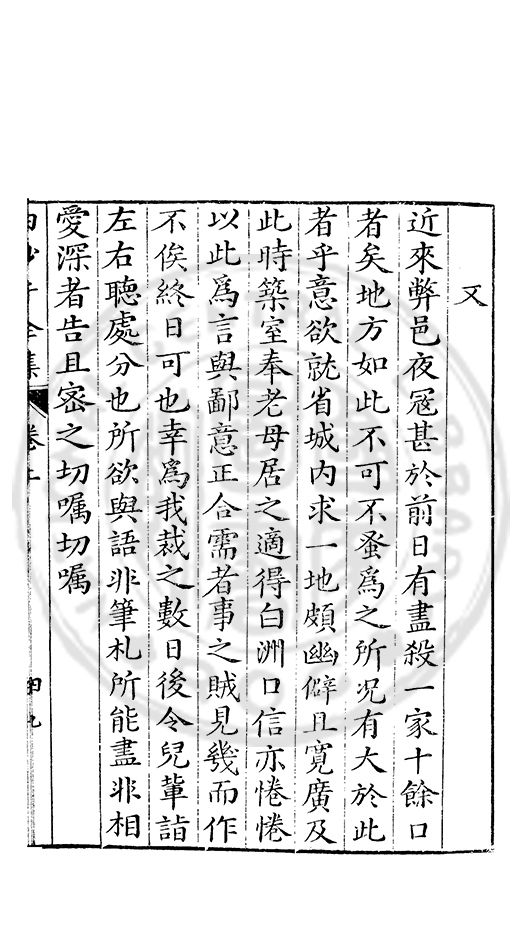 又
近來弊邑夜冦甚於前日有盡殺一家十餘口
者矣地方如此不可不蚤爲之所况有大於此
者乎意欲就省城内求一地頗幽僻且寛廣及
此時築室奉老母居之適得白洲口信亦惓惓
以此爲言與鄙意正合需者事之賊見幾而作
不俟終日可也幸爲我裁之數日後令兒軰詣
左右聽處分也所欲與語非筆札所能盡非相
愛深者告且宻之切嘱切嘱